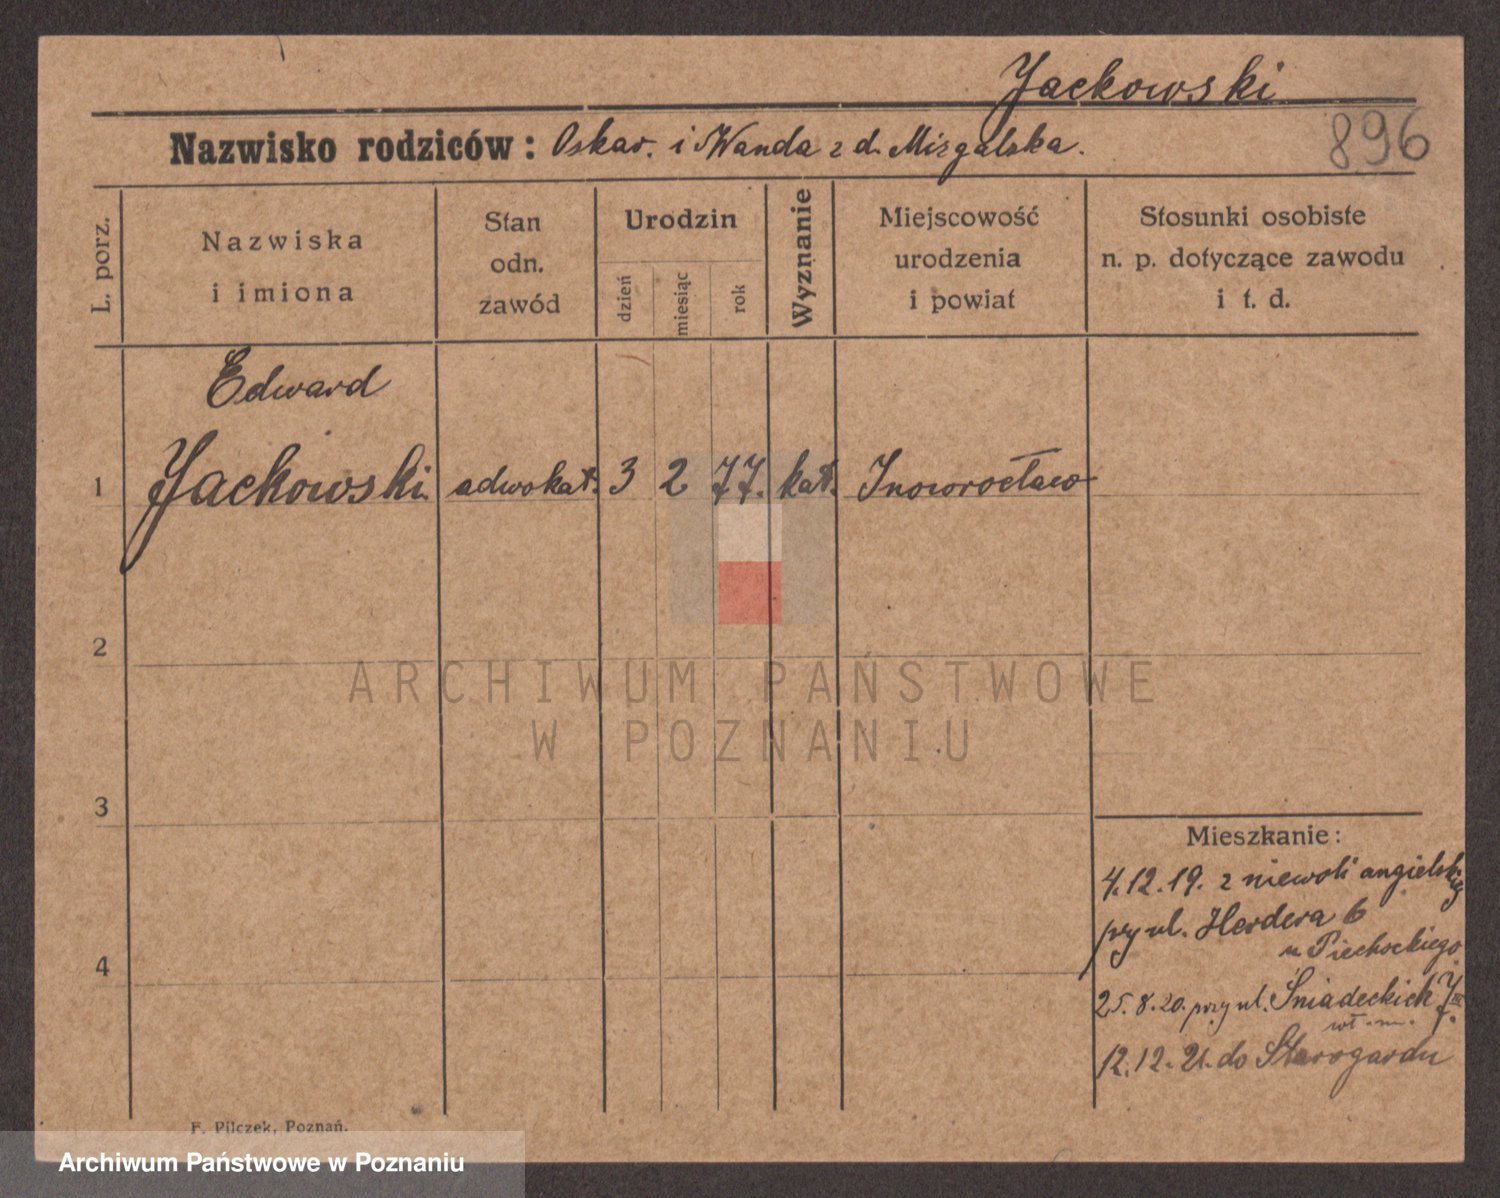 Jackowski
Nazwisko rodziców: Oskar. i Wanda z d. Mizgalska.
896
L. porz.
Nazwiska
i imiona
Stan
odn.
zawód
Urodzin
dzień
miesiąc
rok
Wyznanie
Miejscowość
urodzenia
i powiat
Stosunki osobiste
n. p. dotyczące zawodu
i t. d.
Edward
1 Jackowski adwokat. 3 2 77. kat. Inowrocław
2
ARCHIWUM PAŃSTWOWE
W POZNANIU
3
Mieszkanie:
4.12.19. z niewoli angielskiej
przy ul. Herdera 6
u Piechockiego
4
25.8.20. przy ul. Śniadeckich
wł. m.
12.12.21. do Starogardu
F. Pilczek, Poznań.
Archiwum Państwowe w Poznaniu